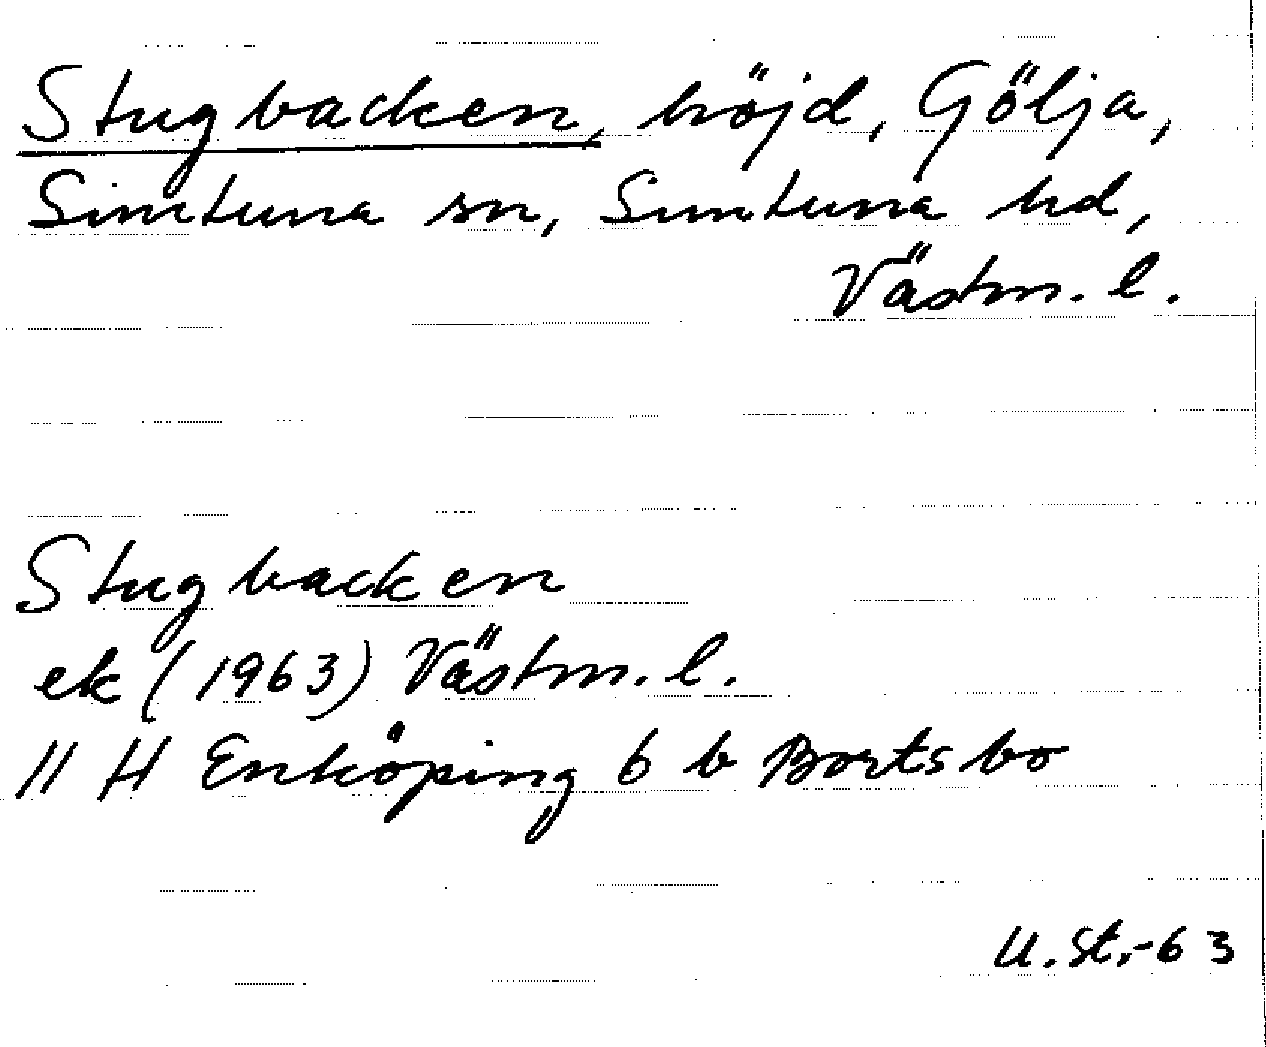 Stugbacken, höjd, Gölja,
Simtuna sn, Simtuna hd,
Västm. l.
Stugbacken
ek (1963) Västm. l.
11 H Enköping 6 b Bortsbo
U. St. -63